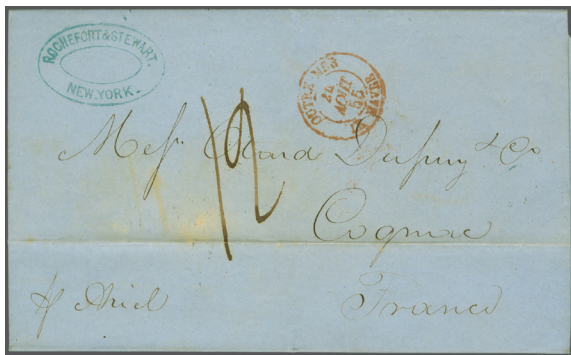 ROCHEFORT & STEWART.
NEW.YORK.
OUTRE MER HAVRE
24
AOUT
55
12
Mess. Otard Dupuy & Co
Cognac
France
p Ariel